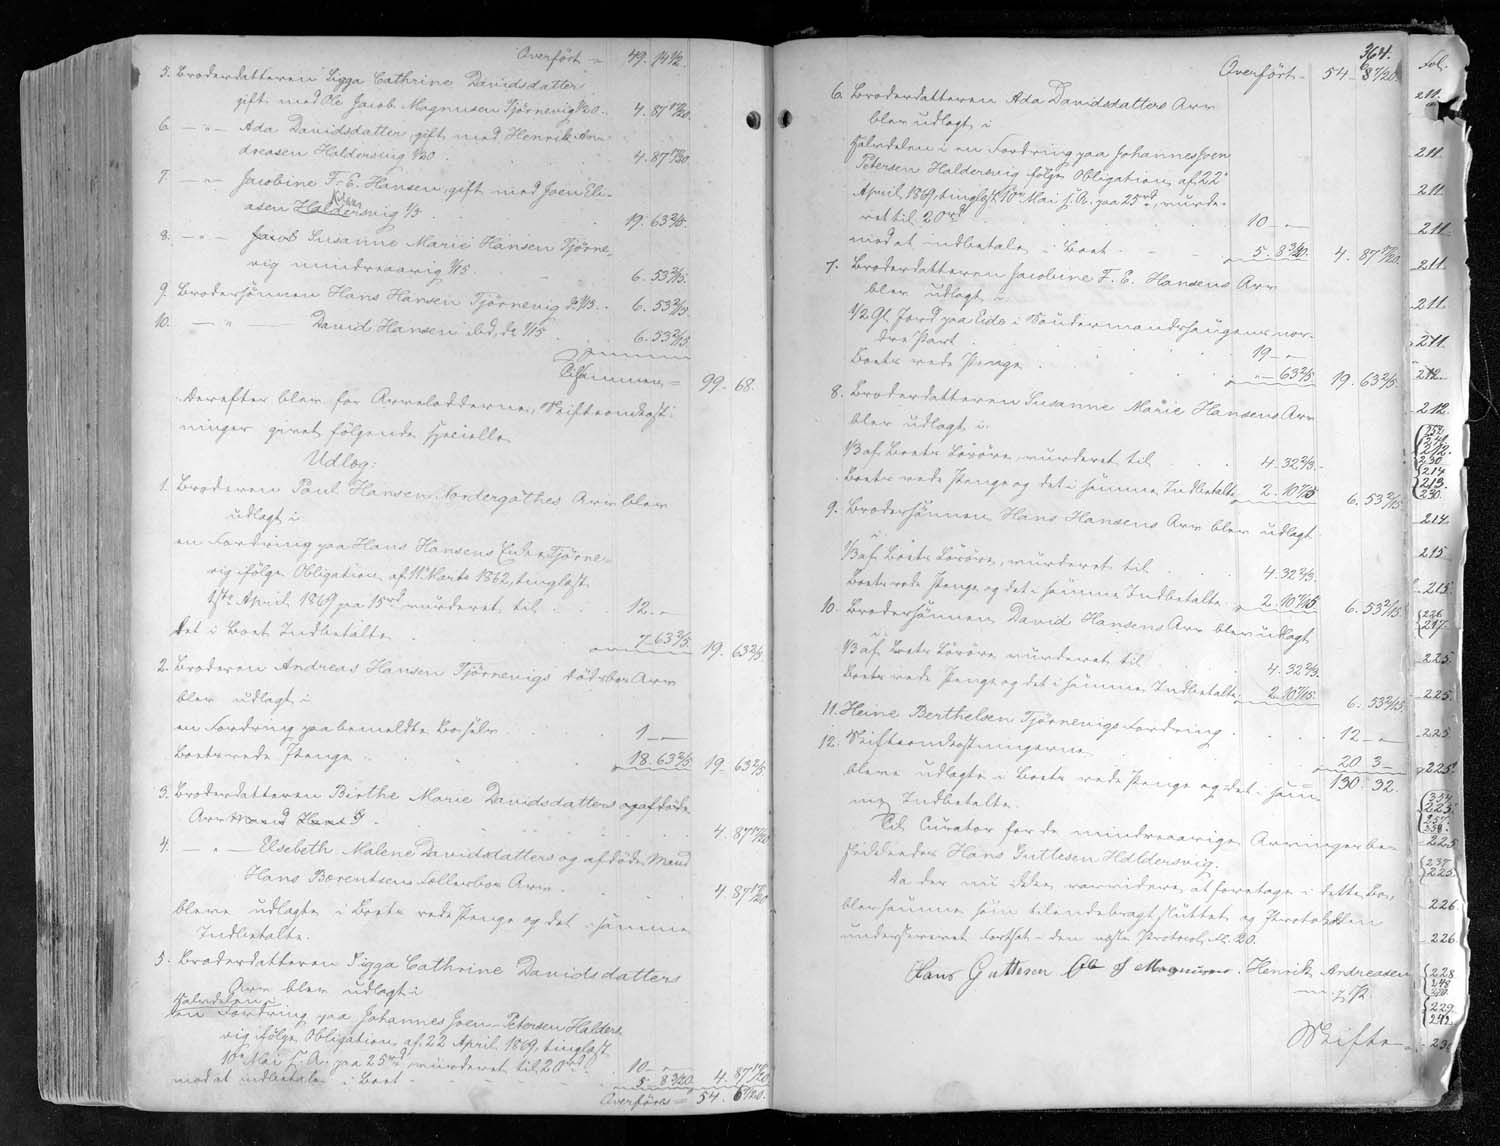 Overført = 49. 14 1/2.
5. Broderdatteren Sigga Cathrine Davidsdatter
gift med Ole Jacob Magnusen Tjørnevig 1/20. 4. 87 17/20.
6. — " — Ada Davidsdatter, gift med Henrik An-
dreasen Haldersvig 1/20 4. 87 17/20
7. — " — Jacobine F. E. Hansen, gift med Joen Eli-
asen Haldersvig 1/5 19. 63 2/5.
8. — " — Jacob Susanne Marie Hansen Tjørne-
vig mindreaarig 1/15 6. 53 2/15.
9. Brodersønnen Hans Hansen Tjørnevig 1/15. 6. 53 2/15.
10. — " — David Hansen ibd. do 1/15 6. 53 2/15.
Tilsammen = 99. 68.
Derefter blev for Arvelodderne, Skifteomkost-
ninger givet følgende specielle
Udlæg:
1. Broderen Poul Hansen Nordergøthes Arv blev
udlagt i
en Fordring paa Hans Hansens Enke Tjørne-
vig ifølge Obligation af 11te Marts 1862, tinglæst
April 1869 paa 15 rd vurderet til 12 "
det i Boet Indbetalte 7. 63 2/5. 19. 63 2/5
2. Broderen Andreas Hansen Tjørnevigs Dødsbos Arv
blev udlagt i
en Fordring paa bemeldte Bo selv 1 — "
Boets rede Penge 18. 63 2/5 19. 63 2/5.
3. Broderdatteren Birthe Marie Davidsdatters og afdøde
Arv Mand Hans 4. 87 17/20
4. — " — Elsebeth Malene Davidsdatters og afdøde Mand
Hans Barentsens Arv 4. 87 17/20
bleve udlagte i Boets rede Penge og det i samme
Indbetalte.
5. Broderdatteren Sigga Cathrine Davidsdatters
Arv blev udlagt i
Halvdelen i
en Fordring paa Johannes Joen Petersen Halders
vig ifølge Obligation af 22 April 1869, tinglæst
10de Mai s. A. paa 25 rd, vurderet til 20 rd 10 — "
mod at indbetale i Boet 5. 8 3/20 4. 87 17/20
Overføres = 54. 6 7/20.
364.
Overført = 54 — 8 7/20
6. Broderdatteren Ada Davidsdatters Arv
blev udlagt i
Halvdelen i en Fordring paa Johannes Joen
Petersen Haldersvig ifølge Obligation af 22
April 1869, tinglæst 10de Mai s. A. paa 25 rd, vurde-
ret til 20 rd 10 — "
mod at indbetale i Boet 5. 8 3/20. 4. 87 17/20.
7. Broderdatteren Jacobine F. E. Hansens Arv
blev udlagt i
1/2 Gl. Jord paa Eide i Søndermandshaugens nor-
dre Part 19 — "
Boets rede Penge " — 63 2/5. 19. 63 2/5.
8. Broderdatteren Susanne Marie Hansens Arv
blev udlagt i
1/3 af Boets Løsøre, vurderet til 4. 32 2/3.
Boets rede Penge og det i samme Indbetalte 2. 10 7/15 6. 53 2/15
9. Brodersønnen Hans Hansens Arv blev udlagt
i
1/3 af Boets Løsøre, vurderet til 4. 32 2/3.
Boets rede Penge og det i samme Indbetalte 2. 10 7/15 6. 53 2/15.
10. Brodersønnen David Hansens Arv blev udlagt
i
1/3 af Boets Løsøre vurderet til 4. 32 2/3.
Boets rede Penge og det i samme Indbetalte 2. 10 7/15. 6. 53 2/15.
11. Heine Berthelsen Tjørnevigs Fordring 12 — "
12. Skifteomkostningerne 20 3 —
bleve udlagte i Boets rede Penge og det i sam- = 130. 32.
me Indbetalte.
Til Curator for de mindreaarige Arvinger be-
skikkedes Hans Guttesen Haldersvig.
Da der nu ikke var videre at foretage i dette Bo,
blev samme som tilendebragt sluttet og Protokollen
underskrevet. Forts. i den nye Protocol 20.
Hans Guttesen Ole J Magnussen. Henrik Andreasen
m. f. P.
Skifte-
Fol.
211.
211
211.
211
211.
211
211.
212
212.
252
241
212.
230
214
213.
230
214
215
215.
226
217.
225
225
225
225
354
225.
257
358.
225
237
225.
226
226
228
248
229
242
23